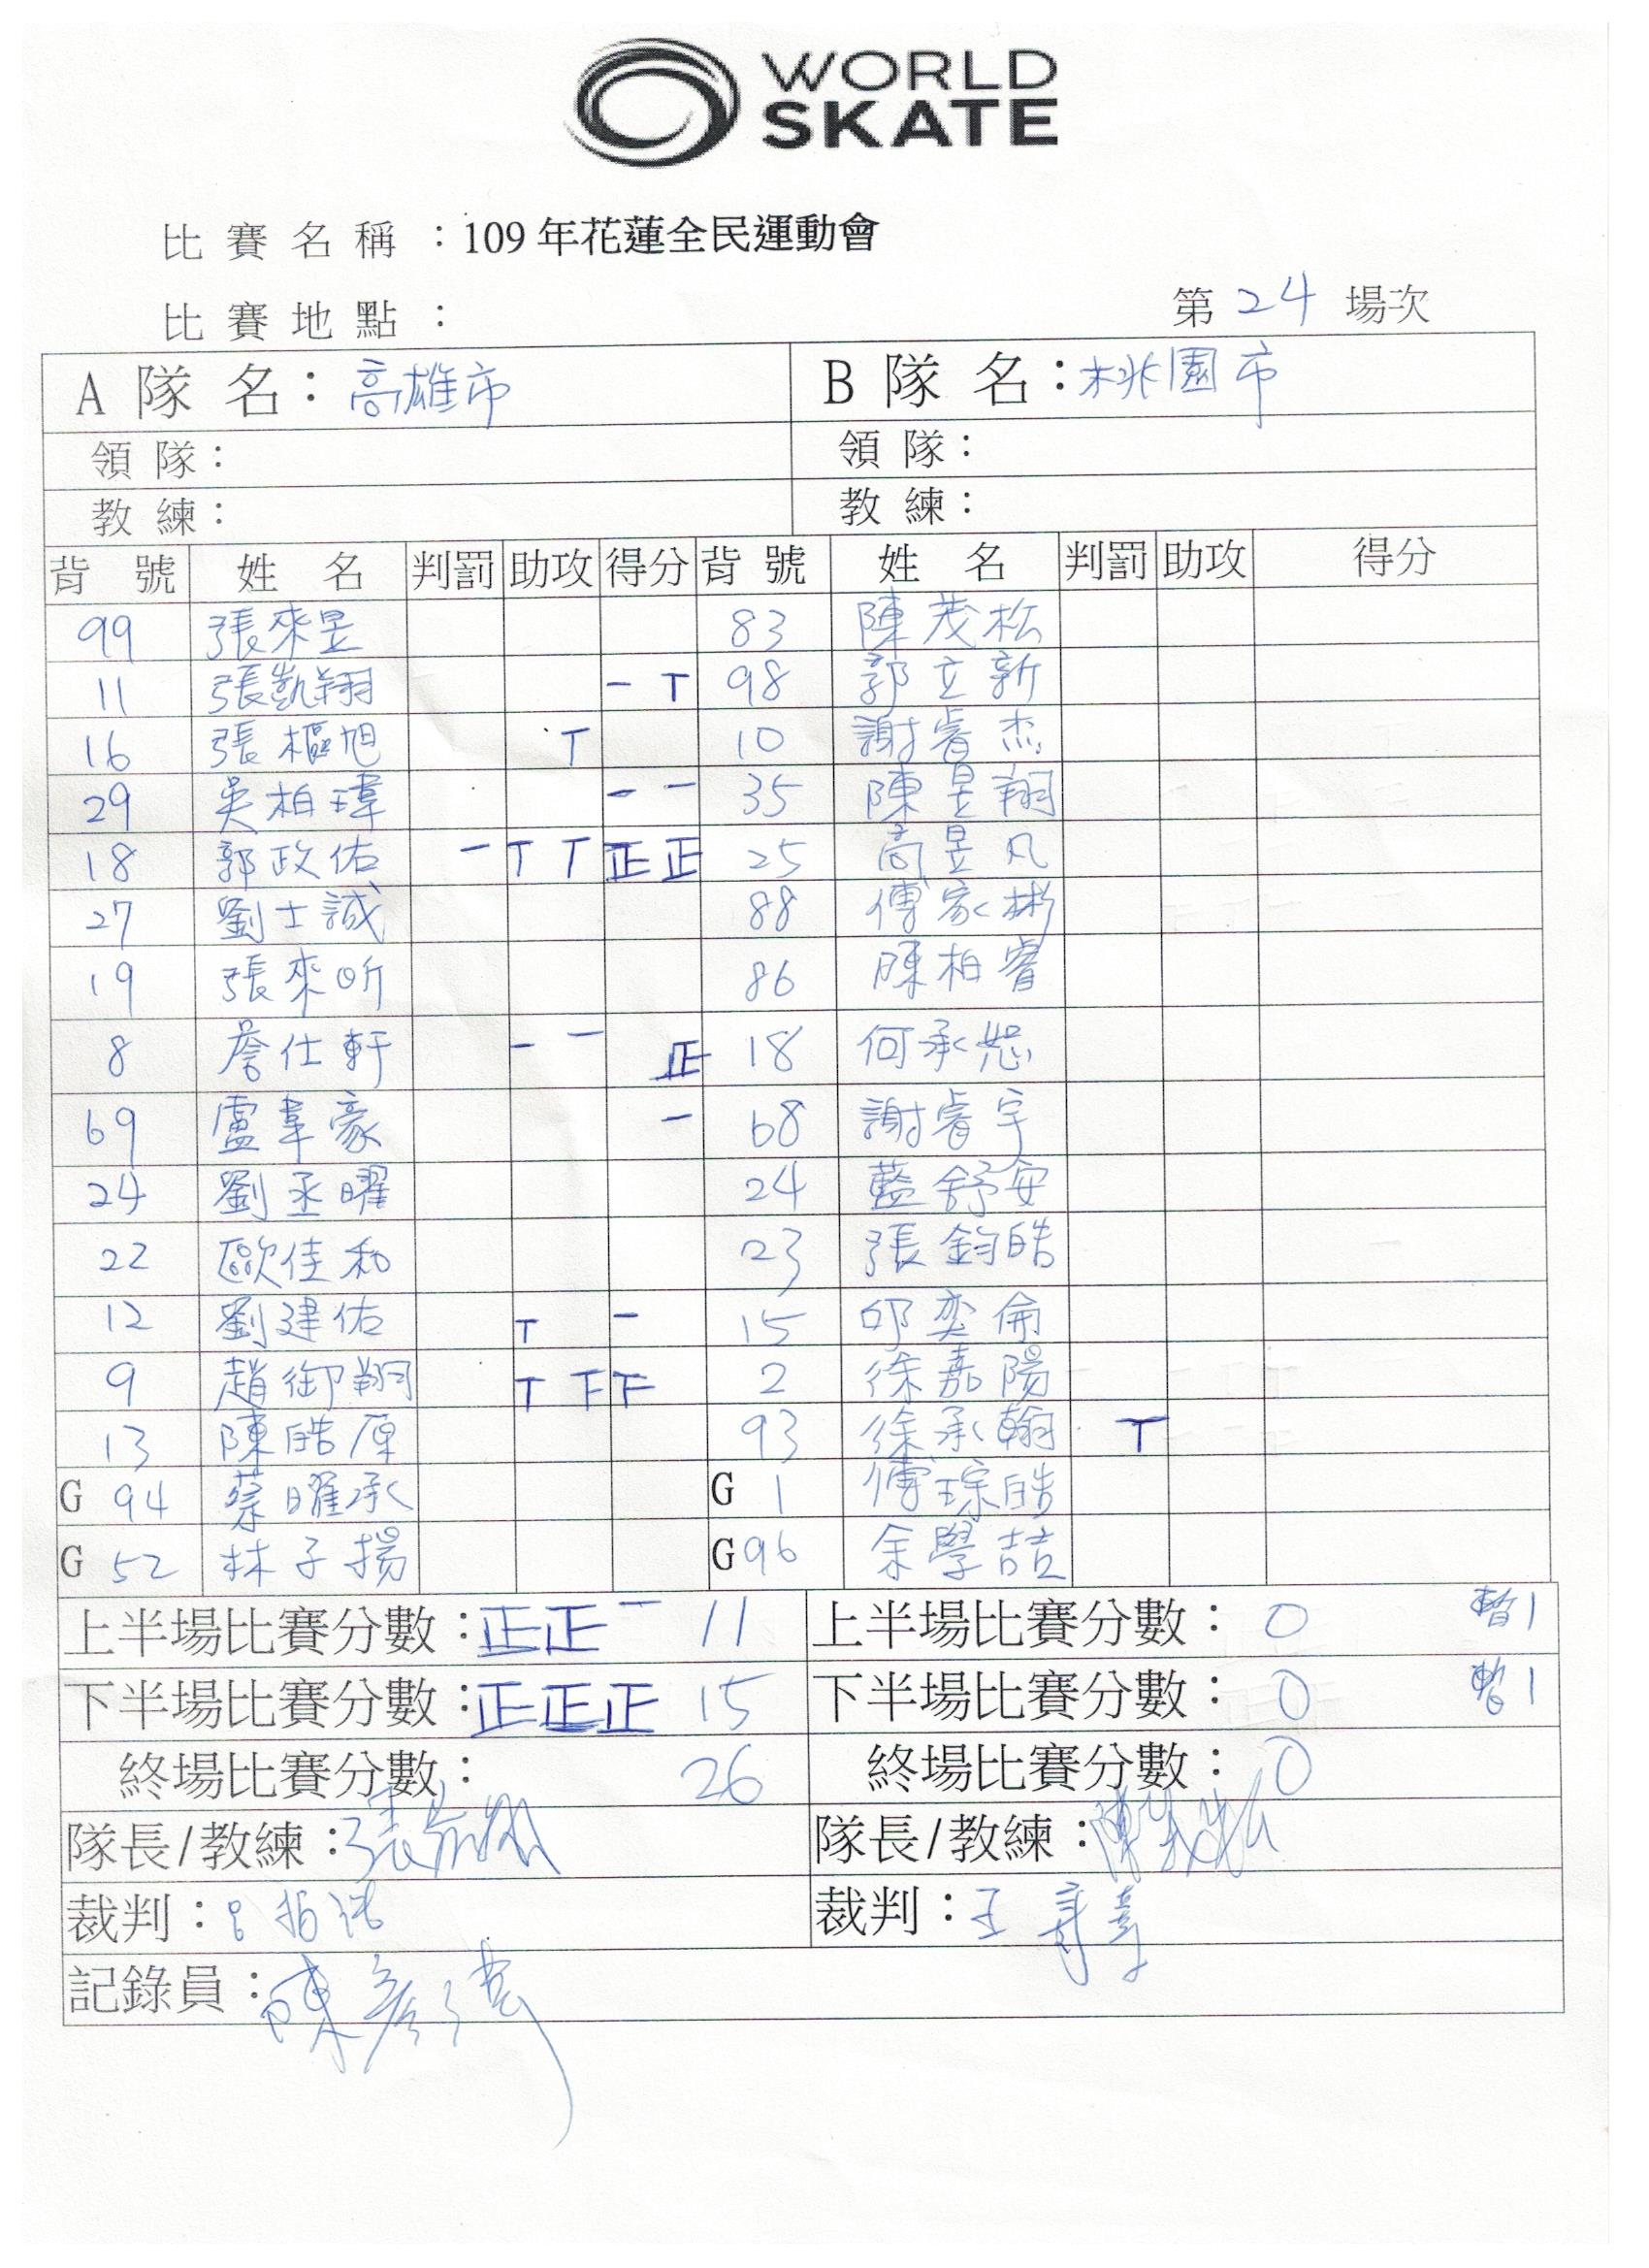 WORLD
SKATE
比賽名稱：109年花蓮全民運動會
比賽地點：
第 24 場次
A 隊名：高雄市 B 隊名：桃園市
領隊： 領隊：
教練： 教練：
背號 姓名 判罰 助攻 得分 背號 姓名 判罰 助攻 得分
99 張來昱 83 陳茂松
11 張凱翔 一 T 98 郭立新
16 張樞旭 T 10 謝睿杰
29 吳柏瑋 一 一 35 陳昱翔
18 郭政佑 一 T T 正正 25 高昱凡
27 劉士誠 88 傅家彬
19 張來昕 86 陳柏睿
8 詹仕軒 一 一 正 18 何承恕
69 盧韋豪 一 68 謝睿宇
24 劉丞曜 24 藍舒安
22 歐佳和 23 張鈞皓
12 劉建佑 T 一 15 邱奕倫
9 趙御翔 T F F 2 徐嘉陽
13 陳皓原 93 徐承翰 T
G 94 蔡曜承 G 1 傅琮皓
G 52 林子揚 G 96 余學喆
上半場比賽分數：正正一 11 上半場比賽分數：0 暫1
下半場比賽分數：正正正 15 下半場比賽分數：0 暫1
終場比賽分數：26 終場比賽分數：0
隊長/教練： 隊長/教練：陳茂松
裁判： 裁判：王
記錄員：陳